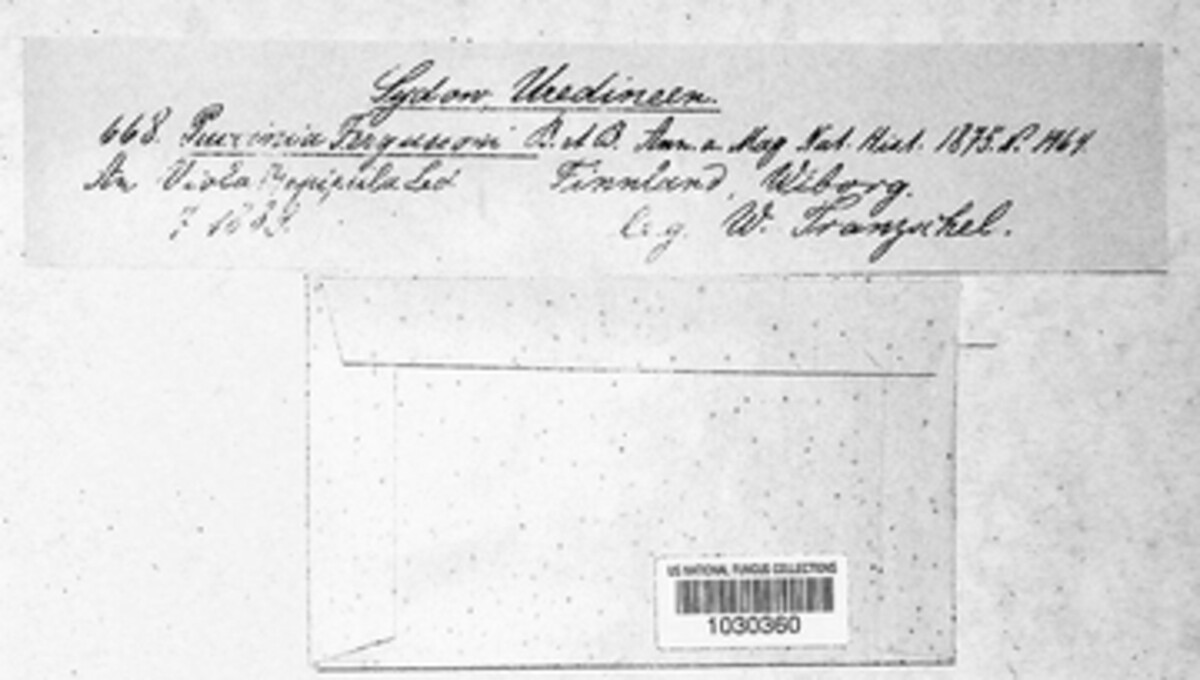 Sydow, Uredineen.
668. Puccinia Fergussoni B. et B. Ann. a. Mag. Nat. Hist. 1875. P.
An Viola epipsila Led Finnland, Wiborg.
7 1889. leg. W. Tranzschel.
US NATIONAL FUNGUS COLLECTIONS
1030360